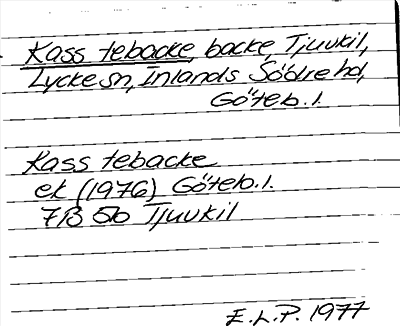 Kasstebacke, backe, Tjuvkil,
Lycke sn, Inlands Södre hd,
Göteb. l.
Kasstebacke
ek (1976) Göteb. l.
7B 5b Tjuvkil
E.L.P. 1977